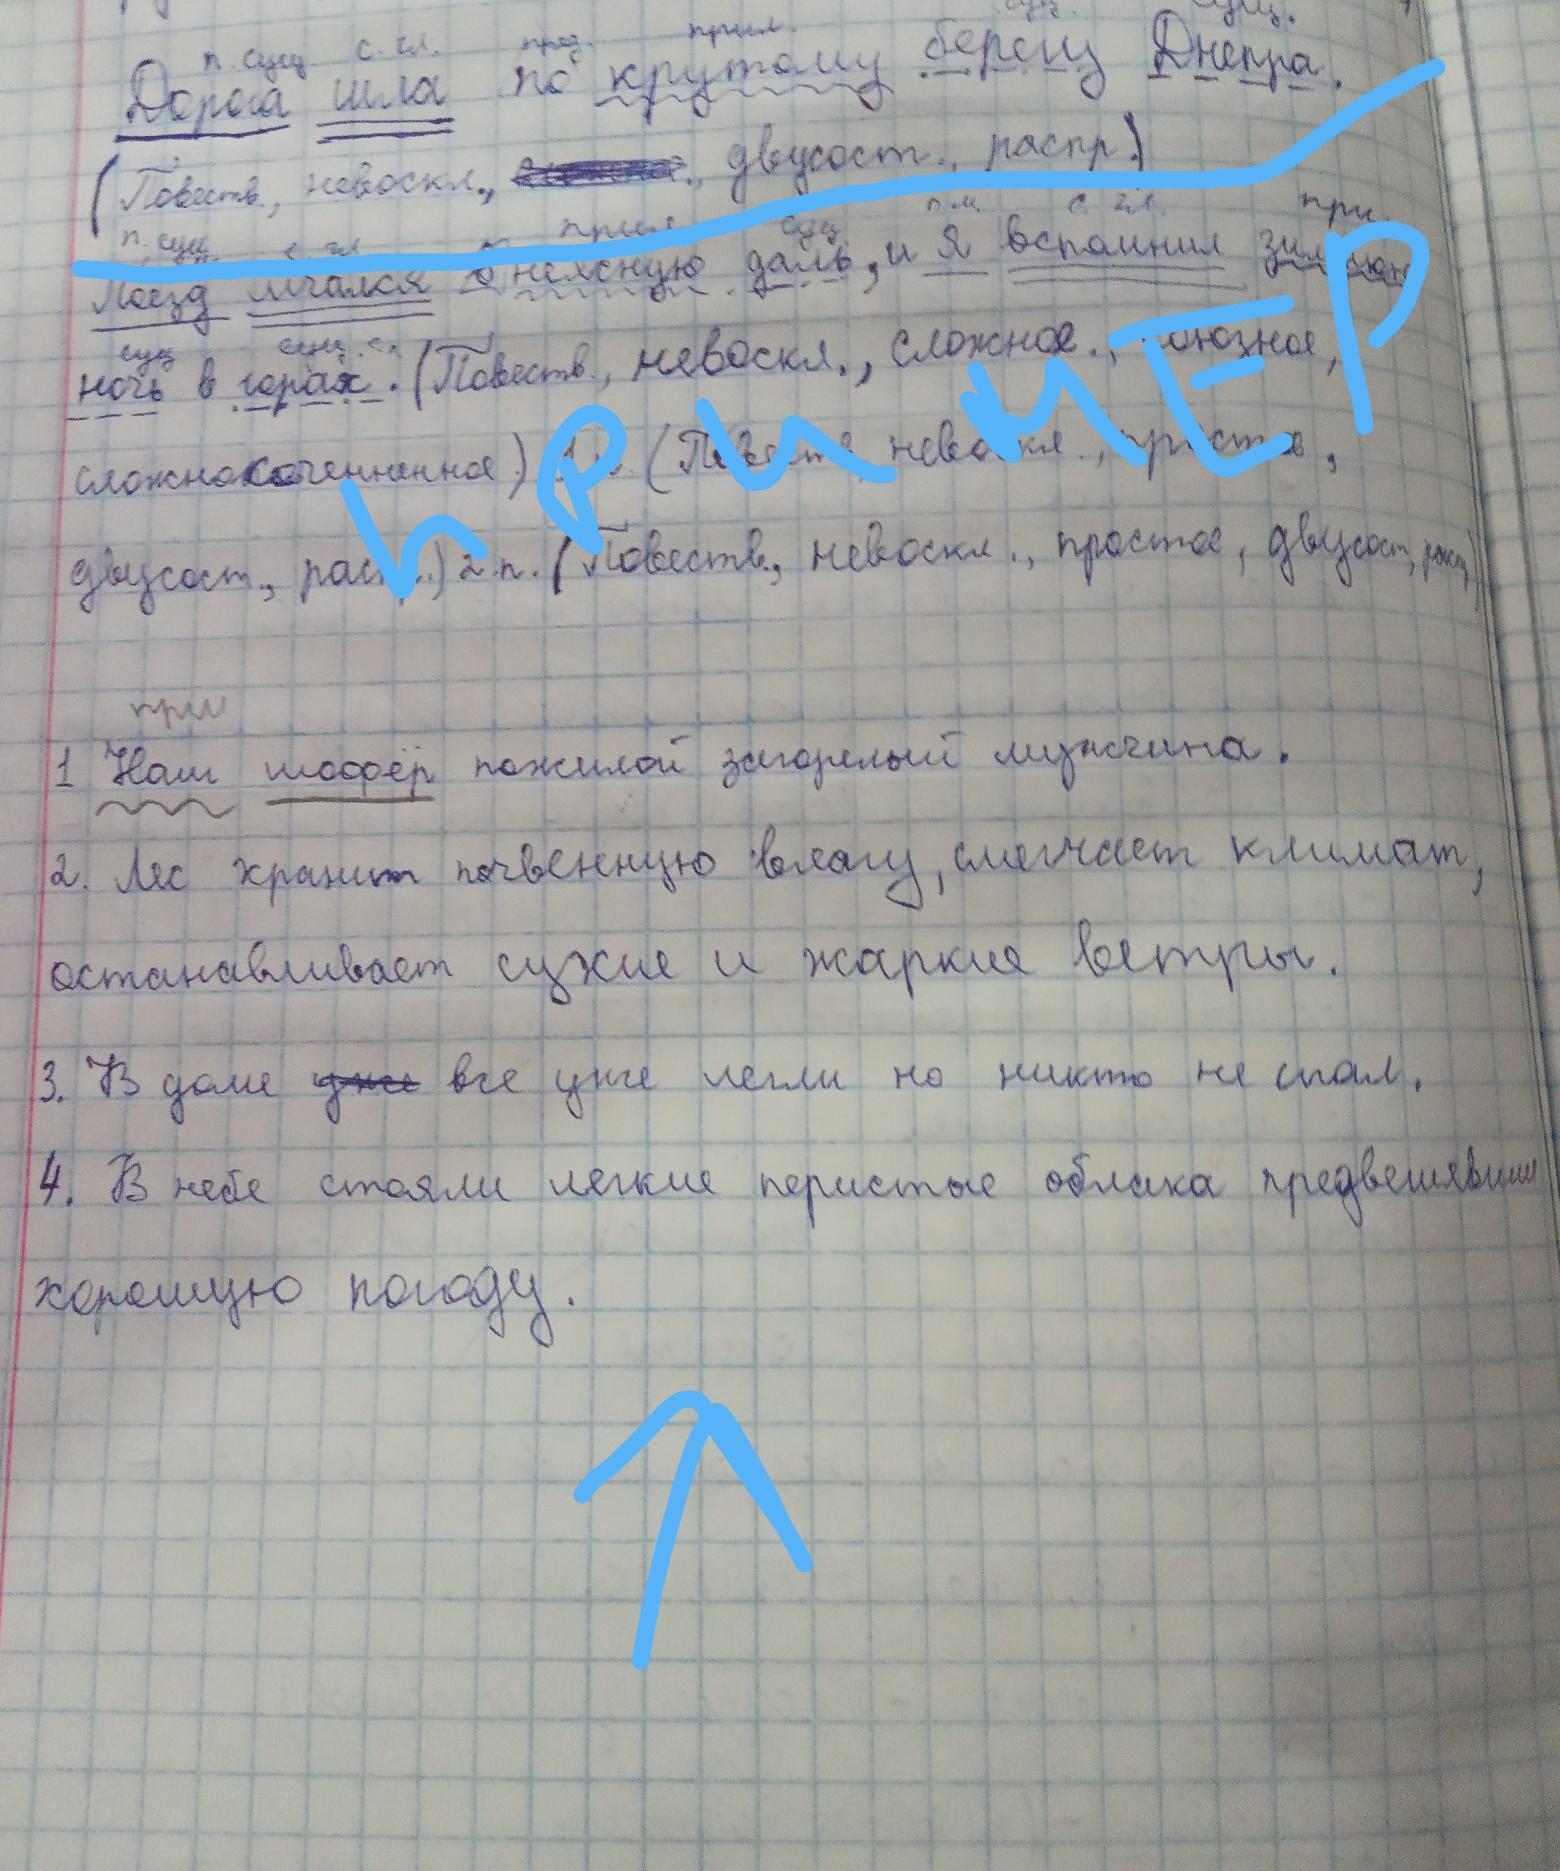 сущ. сущ.
п. сущ с. гл. пред. прил.
Дорога шла по крутому берегу Днепра.
(Повеств., невоскл., двусост., распр.)
п. сущ с. гл прил сущ п.м. с. гл. при.
Поезд мчался в неясную даль, и я вспомнил зимнюю
сущ сущ. с.
ночь в горах. (Повеств., невоскл., сложное., союзное,
ПРИМЕР
сложносочененное) 1 п. (Повеств, невоскл., простое,
двусост., расп.) 2.п. (Повеств., невоскл., простое, двусост, расп)
при
1 Наш шофёр пожилой загорелый мужчина.
2. Лес хранит почвенную влагу, смягчает климат,
останавливает сухие и жаркие ветры.
3. В доме уже все уже легли но никто не спал.
4. В небе стояли легкие перистые облака
хорошую погоду.